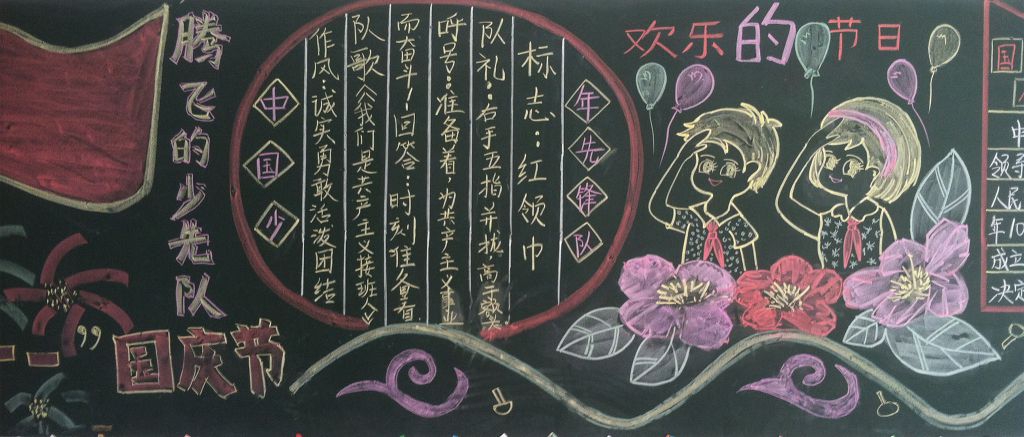 腾飞的少先队
"国庆节
中国少
年先锋队
标志：红领巾
队礼：右手五指并拢高举
呼号：准备着，为共产主义事业
而奋斗！回答：时刻准备着
队歌《我们是共产主义接班人》
作风：诚实勇敢活泼团结
欢乐的节日
国
中
领
人民
年10
成立
决定